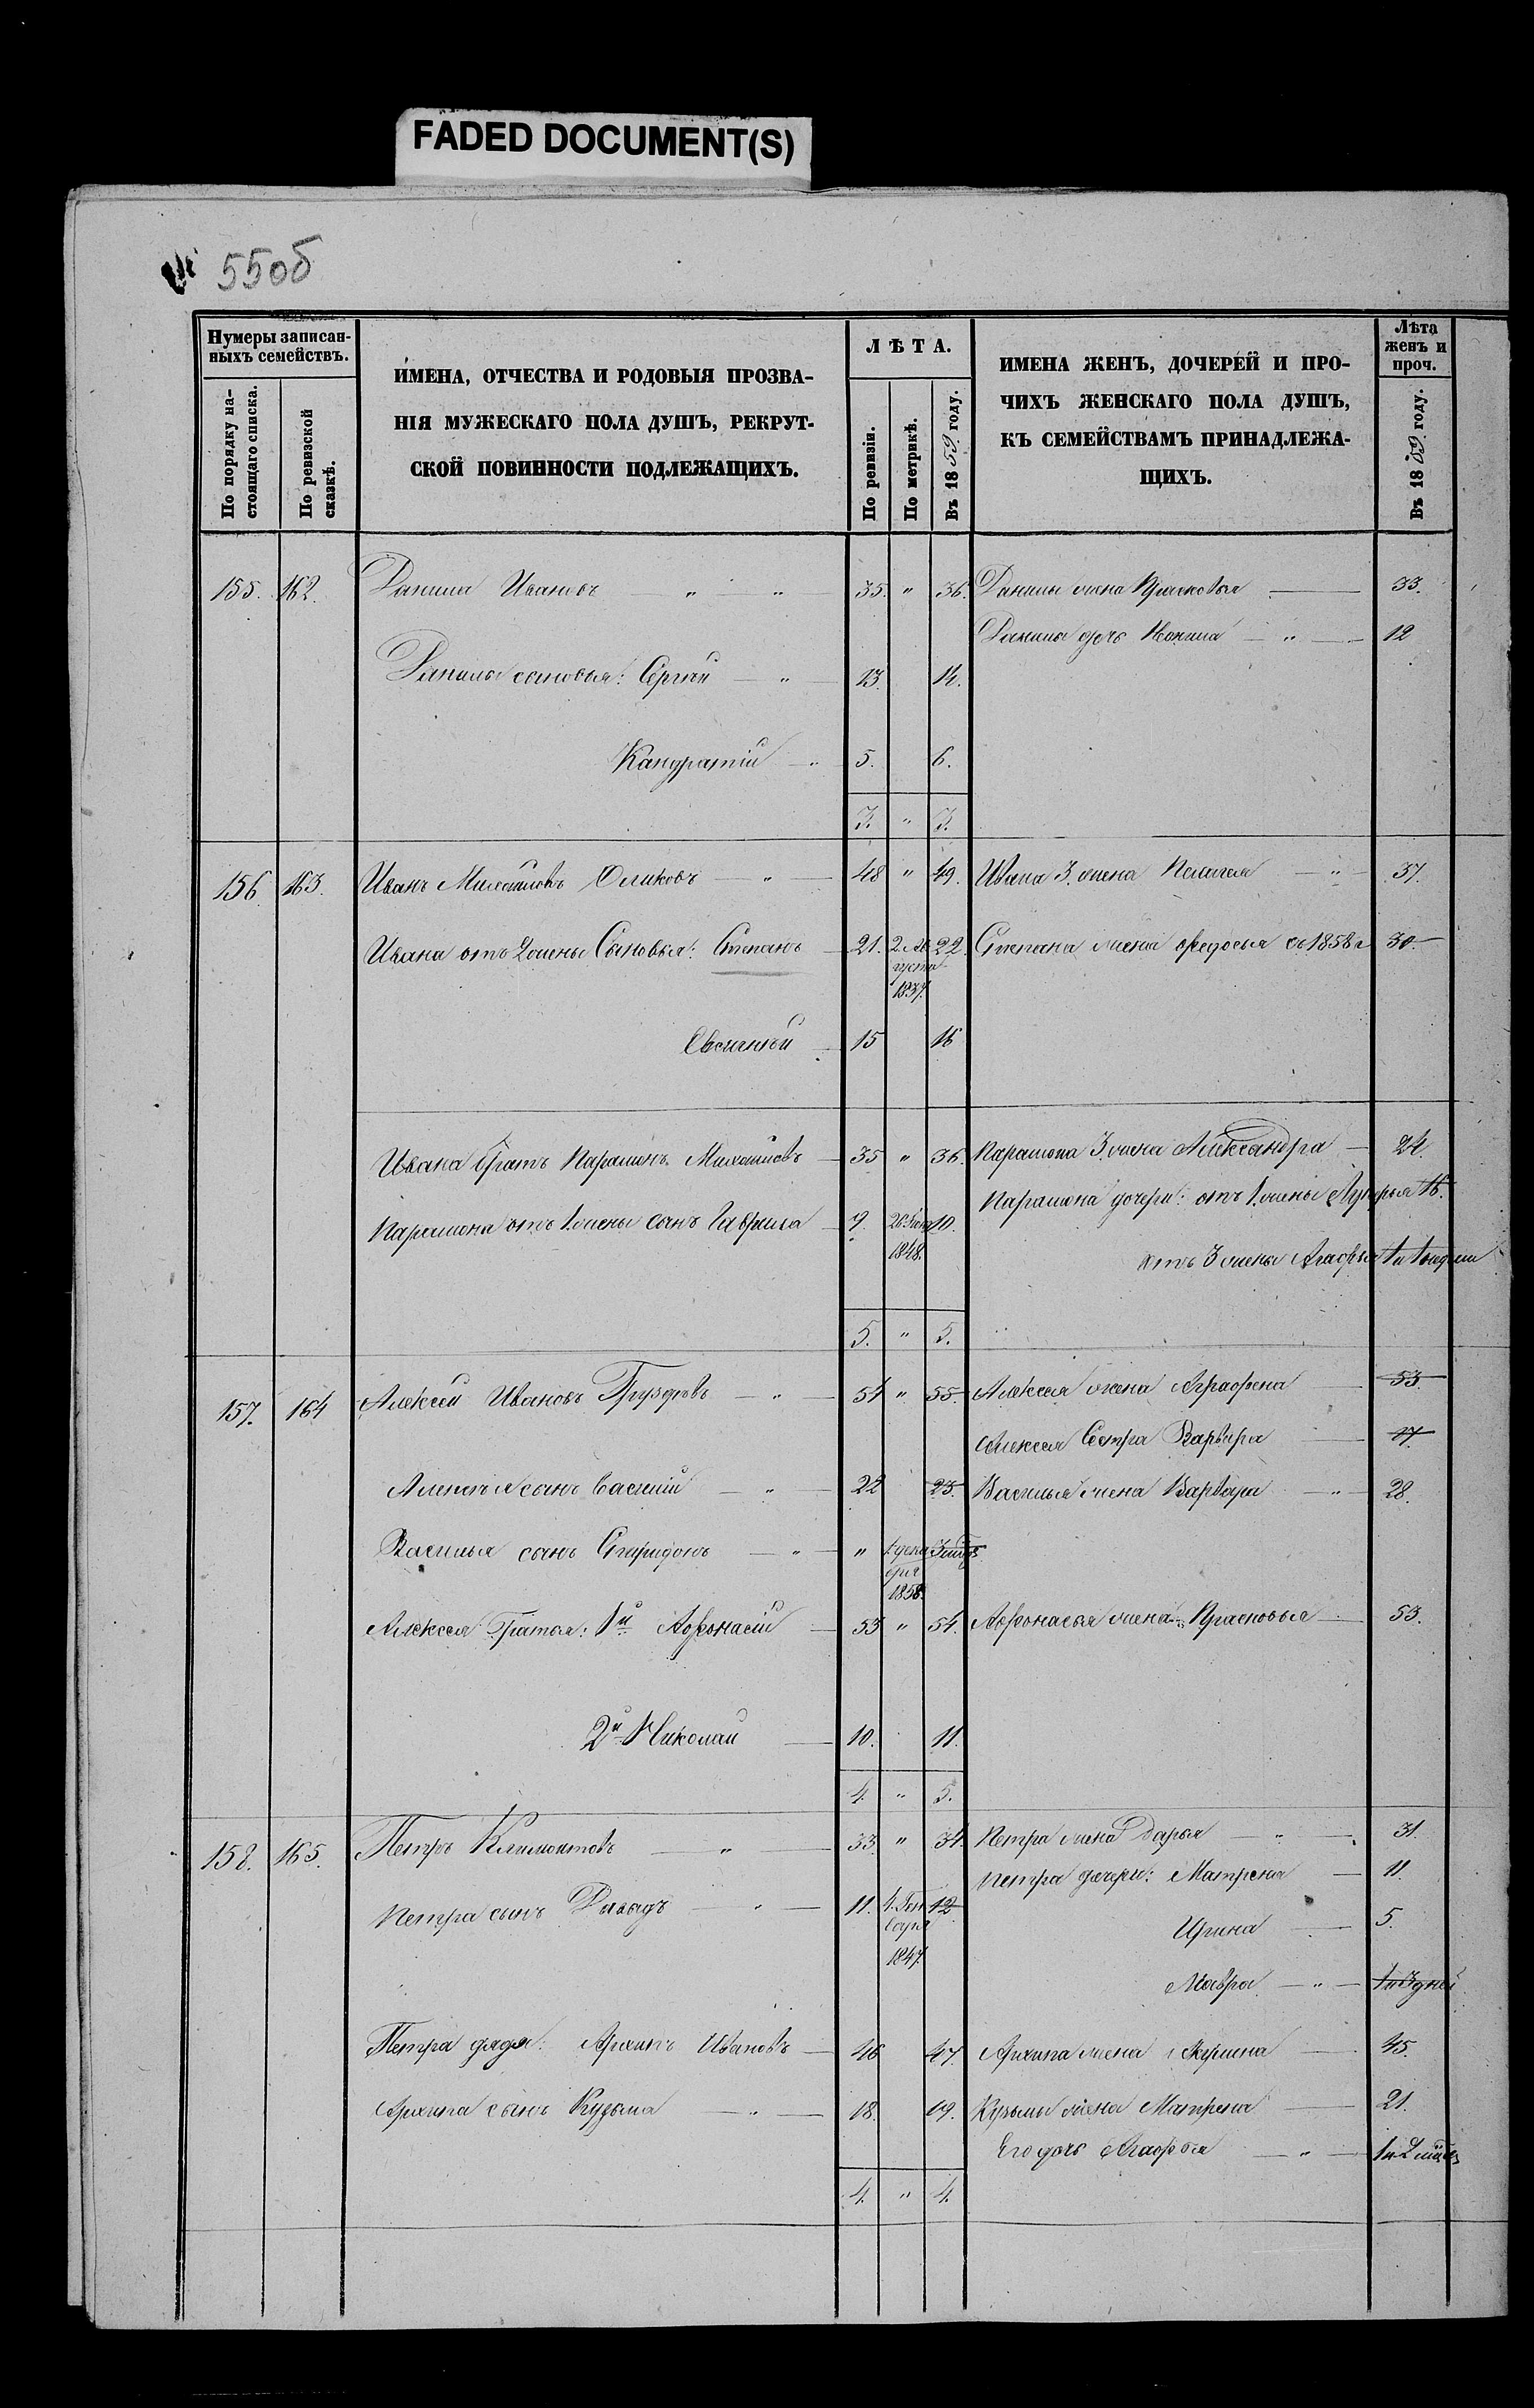 FADED DOCUMENT(S)
550б
Нумеры записан-
ныхъ семействъ.
По порядку на-
стоящаго списка.
По ревизской
сказкѣ.
ИМЕНА, ОТЧЕСТВА И РОДОВЫЯ ПРОЗВА-
НІЯ МУЖЕСКАГО ПОЛА ДУШЪ, РЕКРУТ-
СКОЙ ПОВИННОСТИ ПОДЛЕЖАЩИХЪ.
ЛѢТА.
По ревизіи.
По метрикѣ.
Въ 1859 году.
ИМЕНА ЖЕНЪ, ДОЧЕРЕЙ И ПРО-
ЧИХЪ ЖЕНСКАГО ПОЛА ДУШЪ,
КЪ СЕМЕЙСТВАМЪ ПРИНАДЛЕЖА-
ЩИХЪ.
Лѣта
женъ и
проч.
Въ 1859 году.
155. 162. Данила Ивановъ " " 35. " 36. Данилы жена Прасковья 33.
Данилы дочь " 12
Данилы сыновья: Сергѣй " 13. 14.
Кандратій " 5. 6.
3. " 3.
156. 163. Иванъ Михайловъ " 48 " 49. Ивана 3. жена Пелагея " 37.
Ивана отъ 2 жены Сыновья: Степанъ 21. 2. Ав 22. Степана жена Федосья съ 1858 г 30.
густа
1837.
Евсигнѣй 15 16
Ивана братъ Парамонъ Михайловъ 35 " 36. Парамона 3. жена Александра 24.
Парамона дочери: отъ 1. жены Лукерья 16.
Парамона отъ 1. жены сынъ Гаврила 9. 26. 10.
1848.
отъ 3 жены Агафья 1 недели
5. " 5.
157. 164 Алексѣй Ивановъ Груздовъ " 54 " 55 Алексея жена Аграфена 53.
Алексея Сестра Варвара 17.
Алексѣя сынъ Василій " 22 23. Василья жена Варвара " 28.
Василья сынъ Спиридонъ " " 1. дека
бря
1858.
Алексея Братья: 1й Афонасій 53 " 54. Афонасья жена Прасковья 53.
2й Николай 10. 11.
4. " 5.
158. 165. Петръ Климонтовъ " 33. " 34. Петра жена Дарья " 31.
Петра дочери: Матрена 11.
Петра сынъ Давыдъ " 11. 4. Ген 12
варя
1847.
Ирина 5.
Мавра " дней
Петра дядя: Архипъ Ивановъ 46 47. Архипа жена Акулина 45.
Архипа сынъ Кузьма " 18. 19. Кузьмы жена Матрена 21.
Его дочь Агафья " 1 и 2
4. " 4.